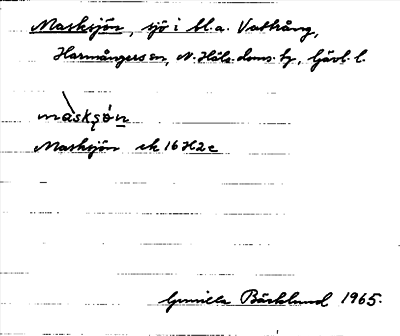 Masksjön, sjö i bl.a. Vattrång,
Harmångers sn, N. Häls. doms. tg, Gävl. l.
màskʂón
Masksjön ek 16H2c
Gunilla Bäcklund 1965.